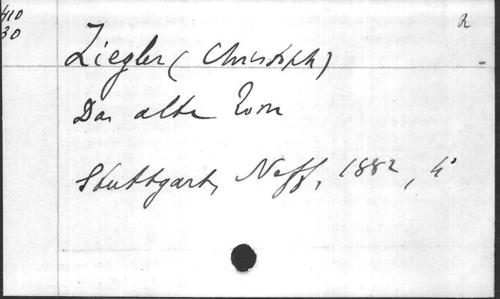 R
410
30
Ziegler (Christoph)
Das alte Rom
Stuttgart, Neff, 1882, 4°